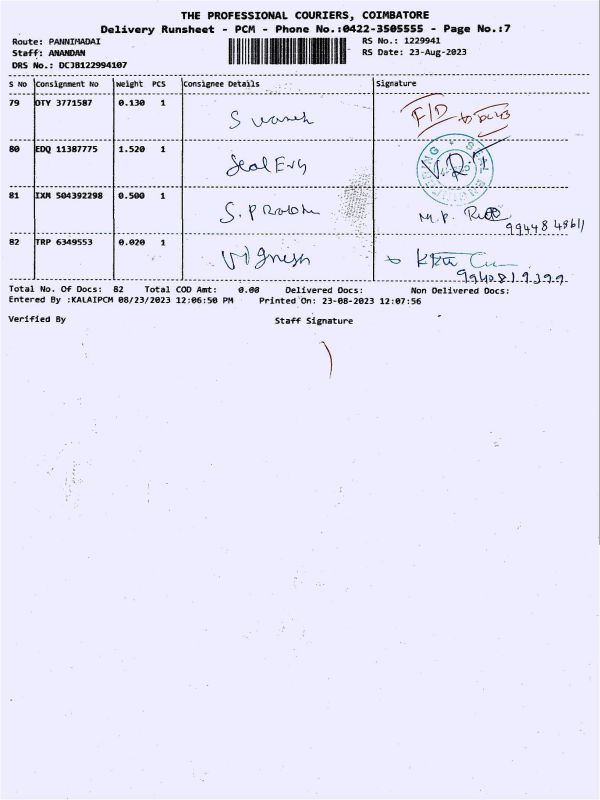 THE PROFESSIONAL COURIERS, COIMBATORE
Delivery Runsheet - PCM - Phone No.:0422-3505555 - Page No.:7
Route: PANNIMADAI RS No.: 1229941
Staff: ANANDAN RS Date: 23-Aug-2023
DRS No.: DCJB122994107
S No Consignment No Weight PCS Consignee Details Signature
79 OTY 3771587 0.130 1 F/D
80 EDQ 11387775 1.520 1 V.R.
81 IXM 504392298 0.500 1 S. M.P.
99448 48611
82 TRP 6349553 0.020 1 Vignesh
9940819399
Total No. Of Docs: 82 Total COD Amt: 0.00 Delivered Docs: Non Delivered Docs:
Entered By :KALAIPCM 08/23/2023 12:06:50 PM Printed On: 23-08-2023 12:07:56
Verified By Staff Signature